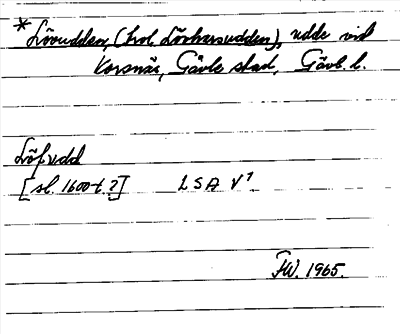 * Lövudden, (trol. Lövharsudden), udde vid
Korsnäs, Gävle stad, Gävl. l.
Löfvdd
[sl. 1600-t.?] LSA V⁷
FW. 1965.